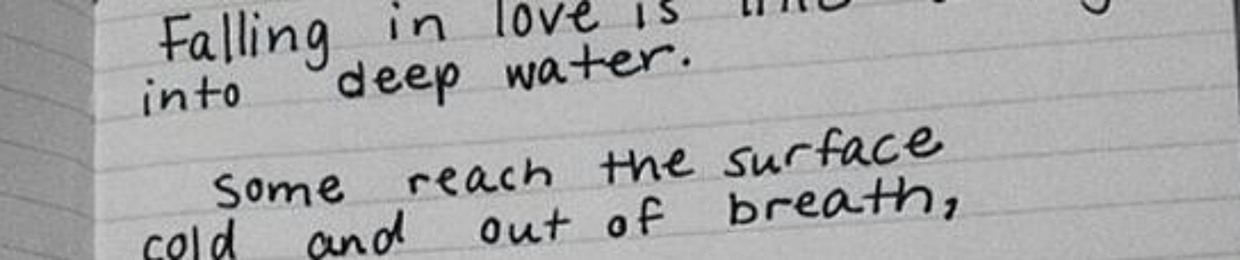 Falling in love is
into deep water.
some reach the surface
cold and out of breath,